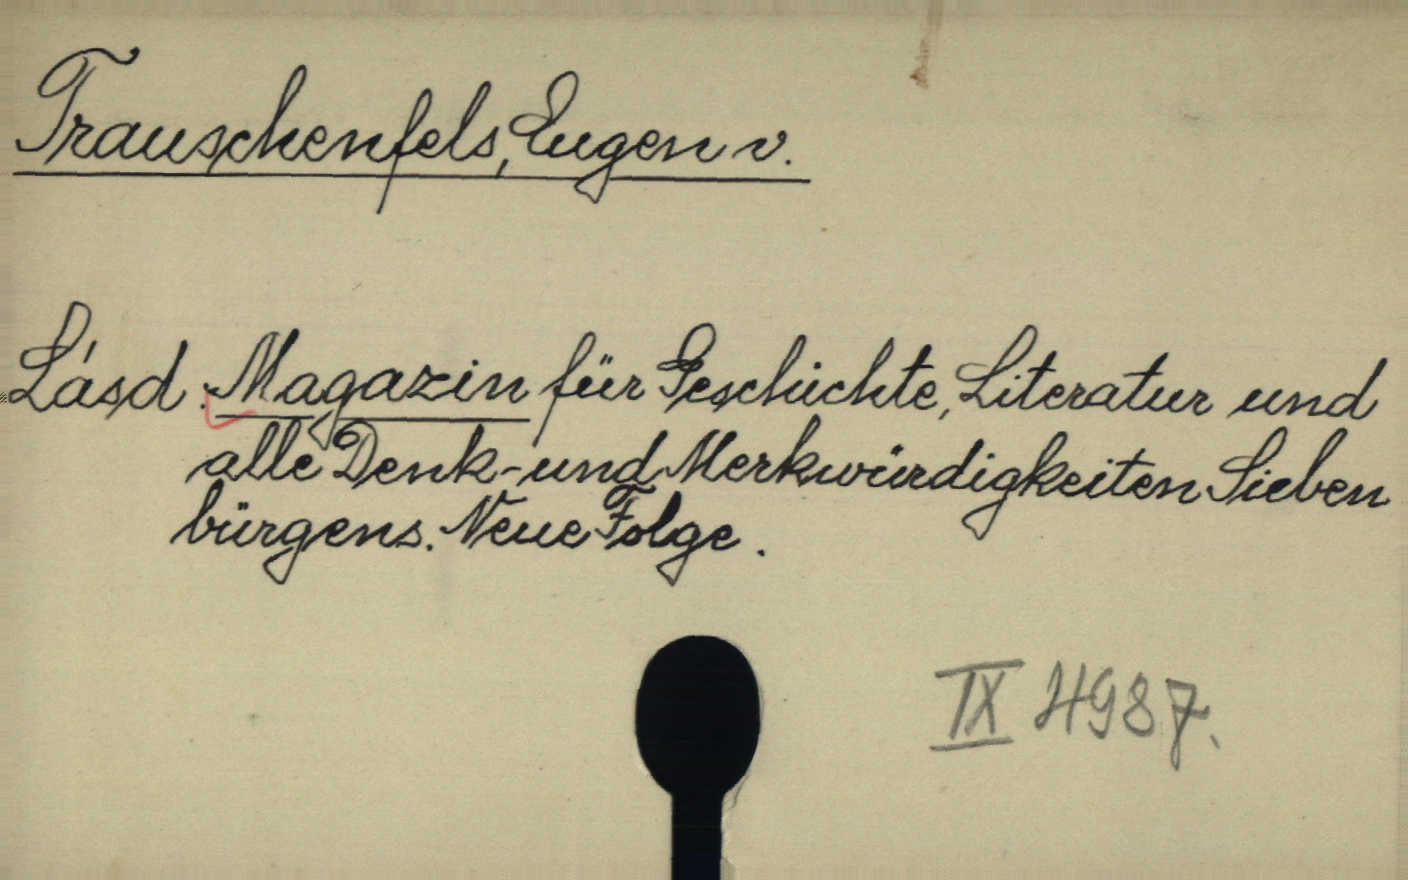 Trauschenfels, Eugen v.
Lásd: Magazin für Geschichte, Literatur und
alle Denk- und Merkwürdigkeiten Sieben
bürgens. Neue Folge.
IX 4987.